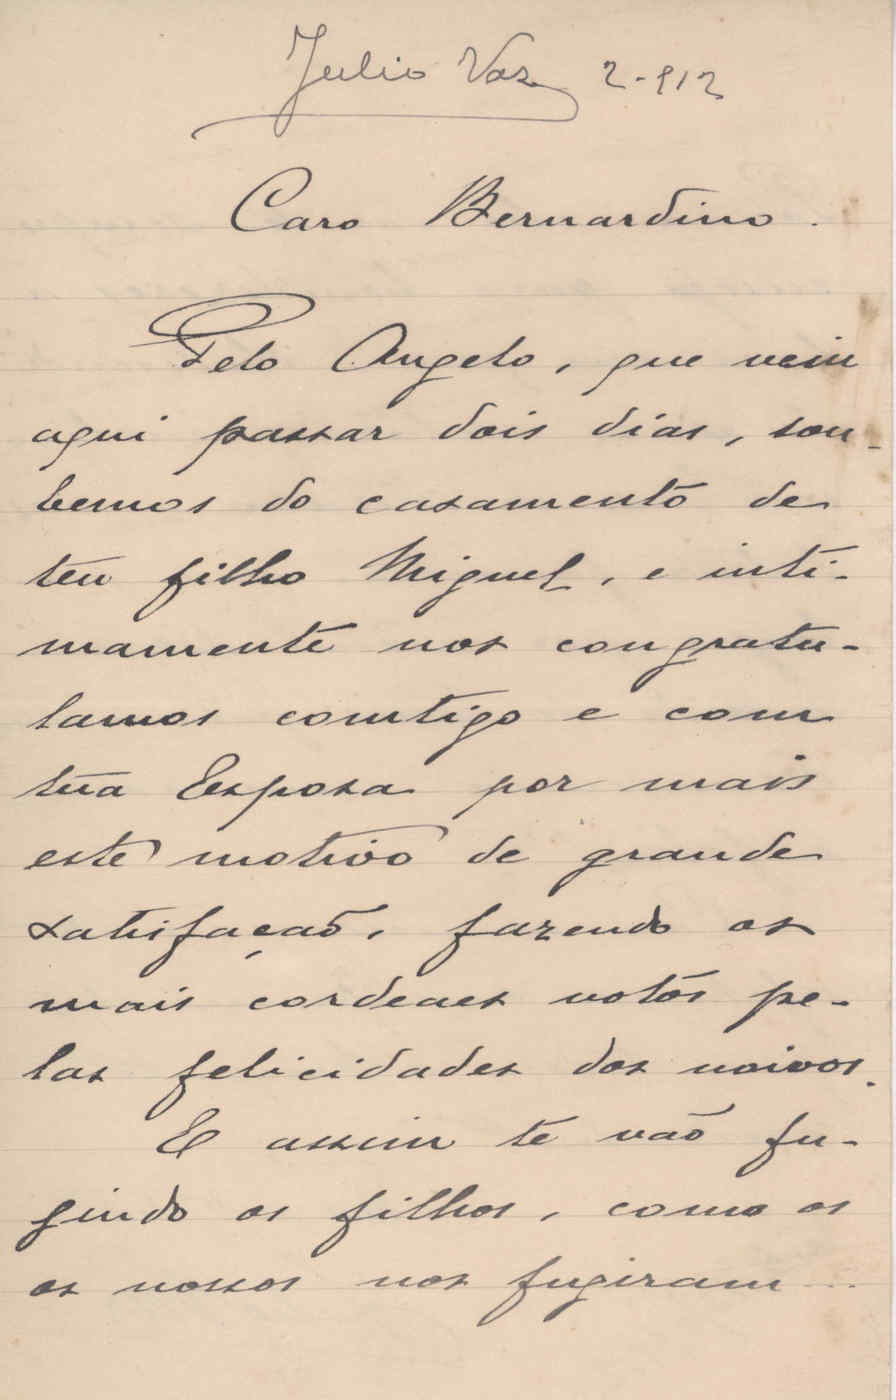 Julio Vaz 2-912
Caro Bernardino.
Pelo Angelo, que veiu
aqui passar dois dias, sou-
bemos do casamento de
teu filho Miguel, e inti-
mamente nos congratu-
lamos comtigo e com
tua Esposa por mais
este motivo de grande
satisfação, fazendo os
mais cordeaes votos pe-
las felicidades dos noivos.
E assim te vão fu-
gindo os filhos, como os
os nossos nos fugiram...